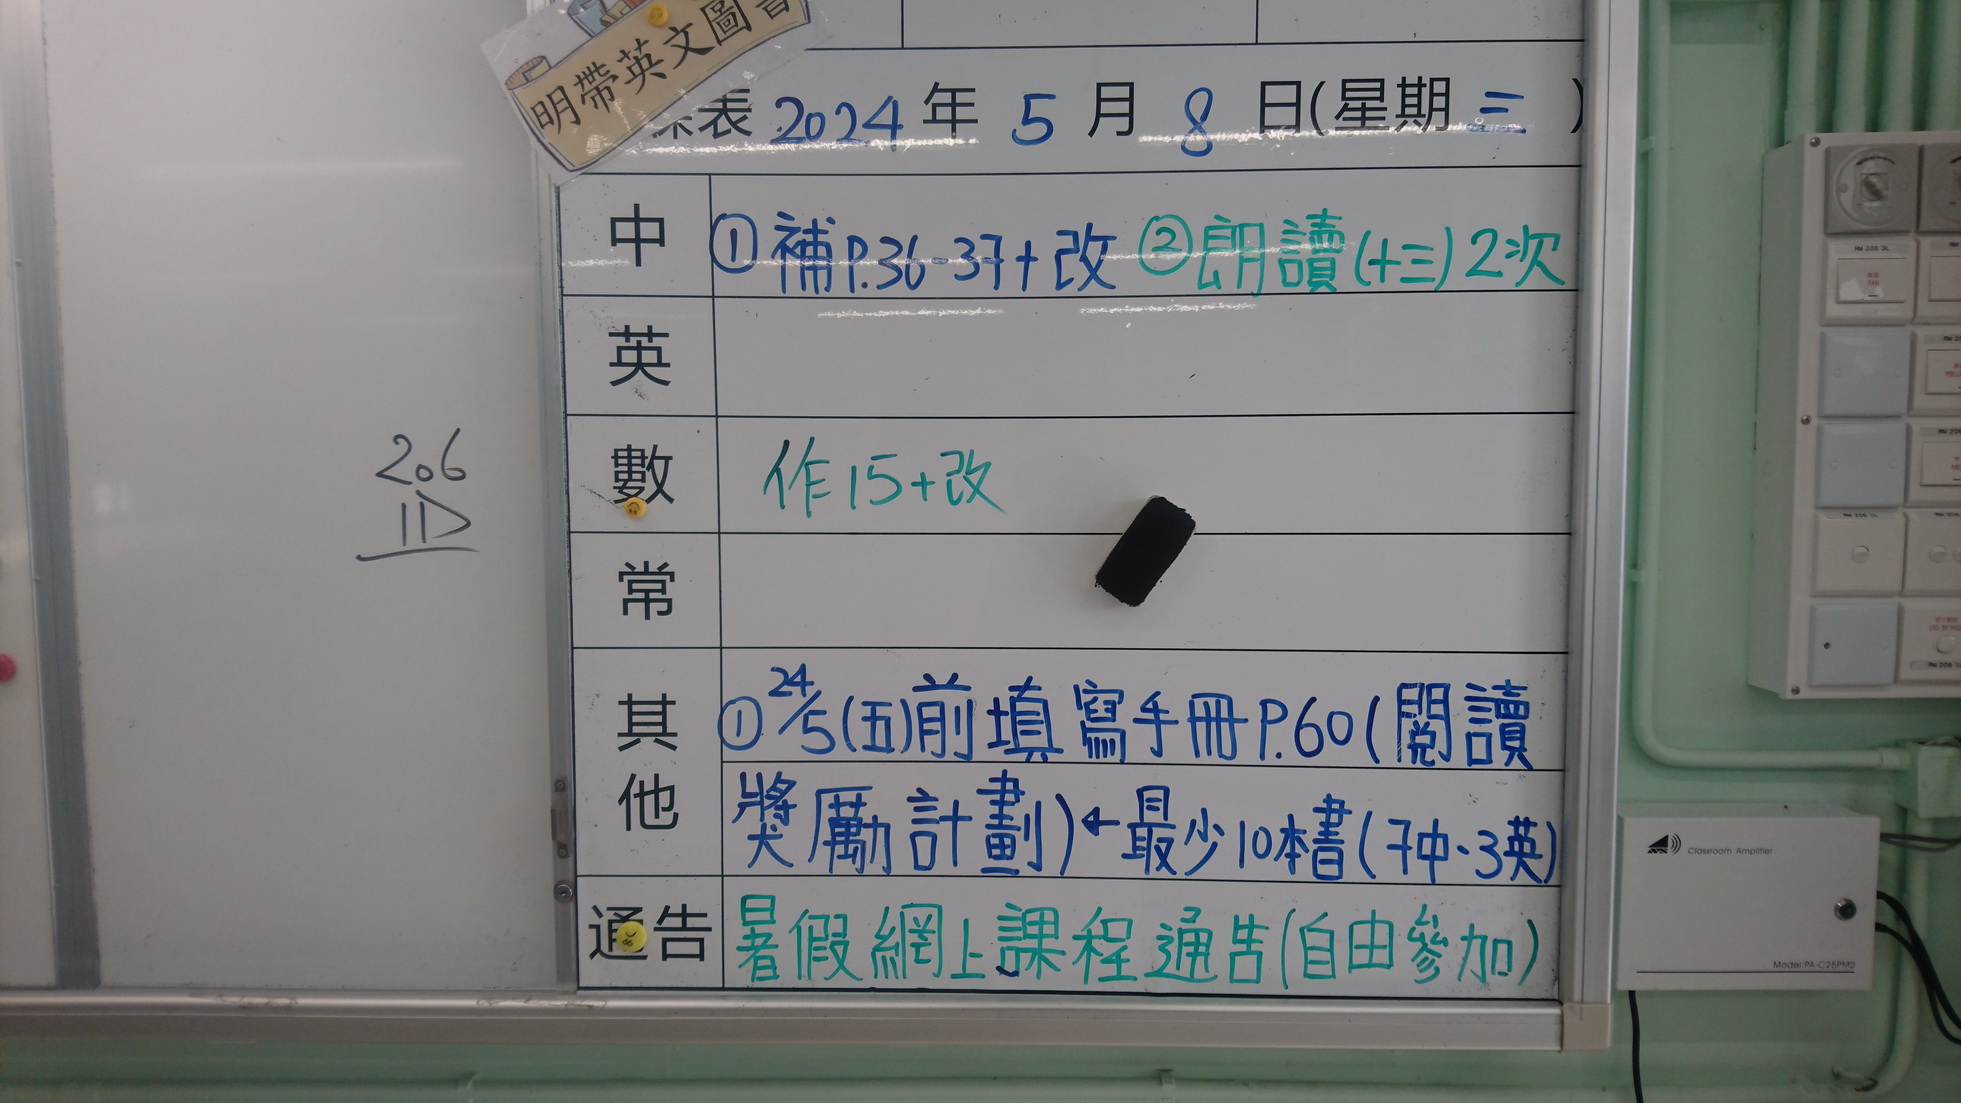 明帶英文圖書
課表 2024 年 5 月 8 日(星期 三 )
中 ①補P.36-37+改 ②朗讀(十三)2次
英
數 作15+改
常
其他 ①24/5(五)前填寫手冊P.60(閱讀
獎勵計劃)←最少10本書(7中、3英)
通告 暑假網上課程通告(自由參加)
206
11D
Classroom Amplifier
Model:PA-C25PM2